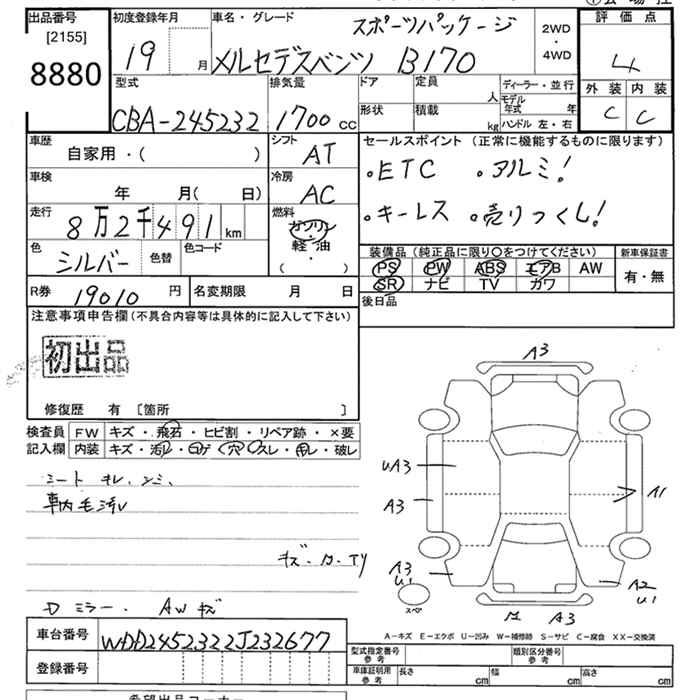 出品番号
[2155]
8880
初度登録年月
19 月
車名・グレード
スポーツパッケージ
メルセデスベンツ B170
2WD
・
4WD
評価点
4
外装 内装
C C
型式
CBA-245232
排気量
1700 cc
ドア
形状
定員
人
積載
kg
ディーラー・並行
モデル年式 年
ハンドル 左・右
車歴
自家用・( )
シフト
AT
車検
年 月( 日)
冷房
AC
走行
8万2千491 km
燃料
ガソリン
軽・油
( )
色
シルバー
色替
色コード
セールスポイント (正常に機能するものに限ります)
・ETC ・アルミ!
・キーレス ・売りつくし!
装備品 (純正品に限り○をつけてください)
PS PW ABS エアB AW
SR ナビ TV カワ
新車保証書
有・無
R券
19010 円
名変期限 月 日
後日品
注意事項申告欄 (不具合内容等は具体的に記入して下さい)
初出品
修復歴 有 [箇所 ]
検査員
記入欄
FW キズ・飛石・ヒビ割・リペア跡・×要
内装 キズ・汚レ・コゲ・穴・スレ・向レ・破レ
シート
車内
ミラー. AW キズ
A3
UA3
A3
A3
U1
A2
U1
A3
スペ
A−キズ E−エクボ U−凹み W−補修跡 S−サビ C−腐食 XX−交換済
車台番号
WDD2452322J232677
登録番号
型式指定番号
参考
類別区分番号
参考
車庫証明用
参考
長さ cm
幅 cm
高さ cm
希望出品コーナー